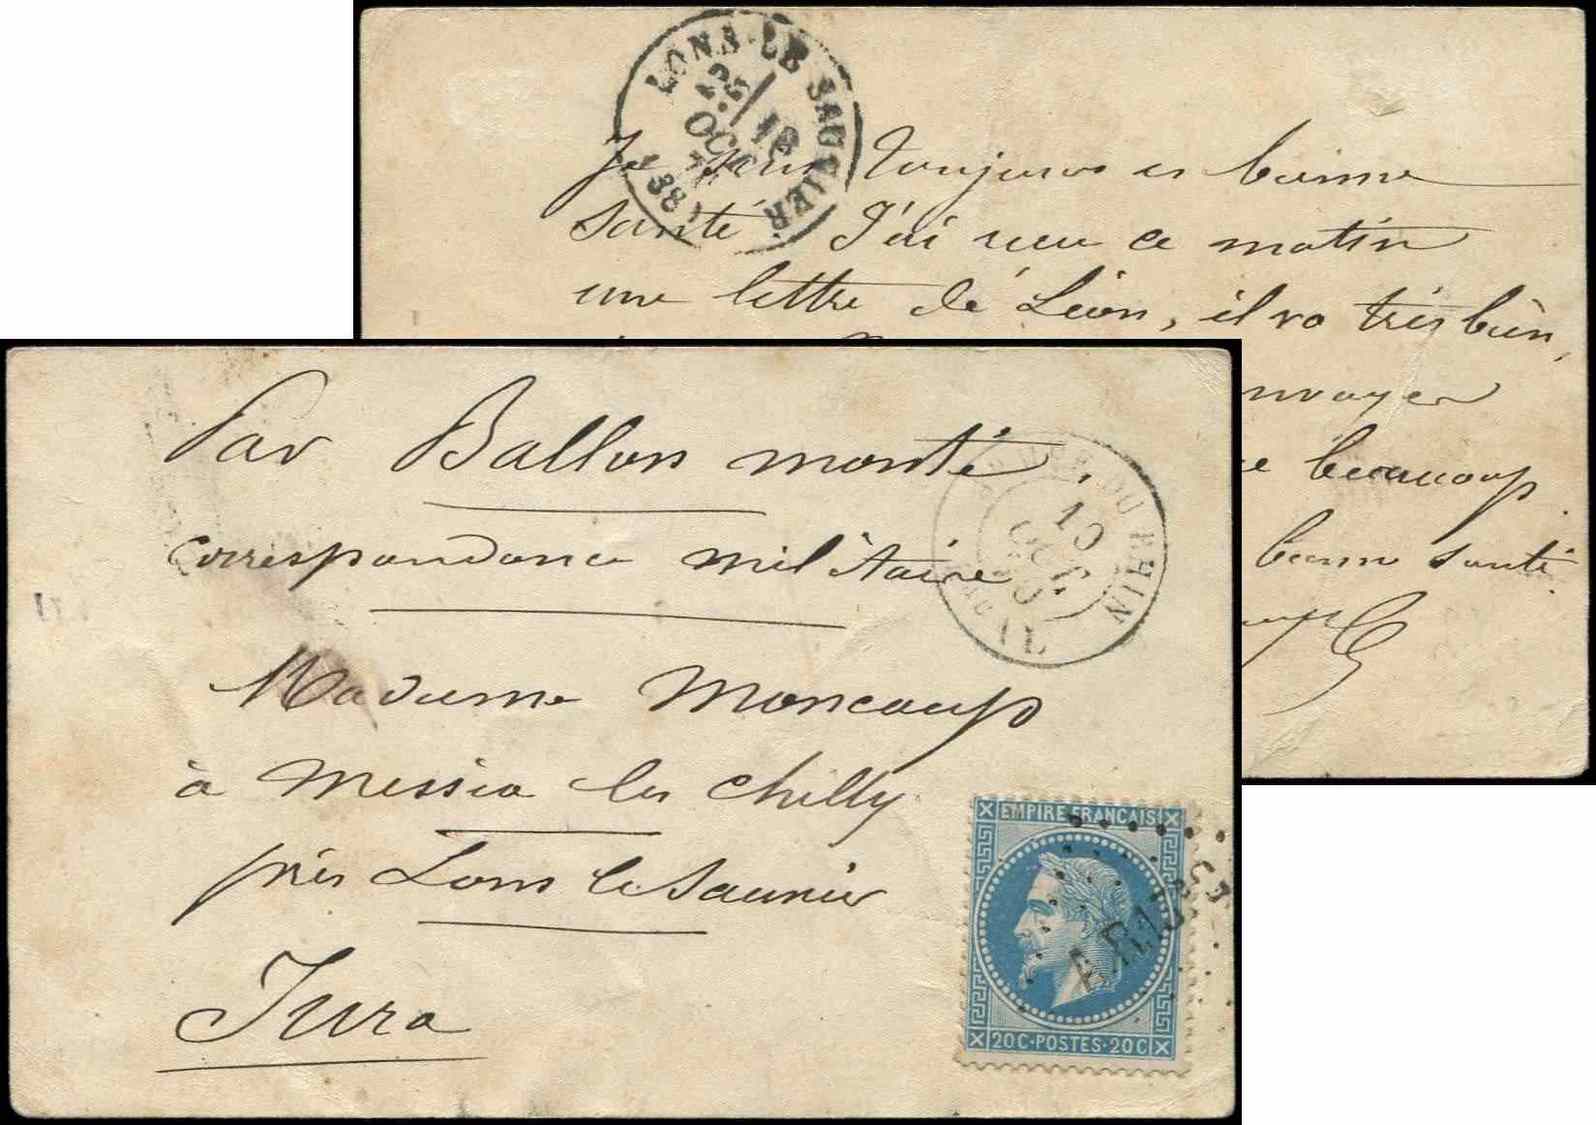 LONS-LE-SAUNIER
OCT.
(38)
Je suis toujours en bonne
santé. J'ai reçu ce matin
une lettre de Léon, il va très bien,
envoyer
beaucoup
bonne santé
Par Ballon monté,
correspondance militaire
DU RHIN
10
OCT.
70
Madame Moncoup
à Messia les Chilly
près Lons le Saunier
Jura
EMPIRE FRANÇAIS
20C·POSTES·20C